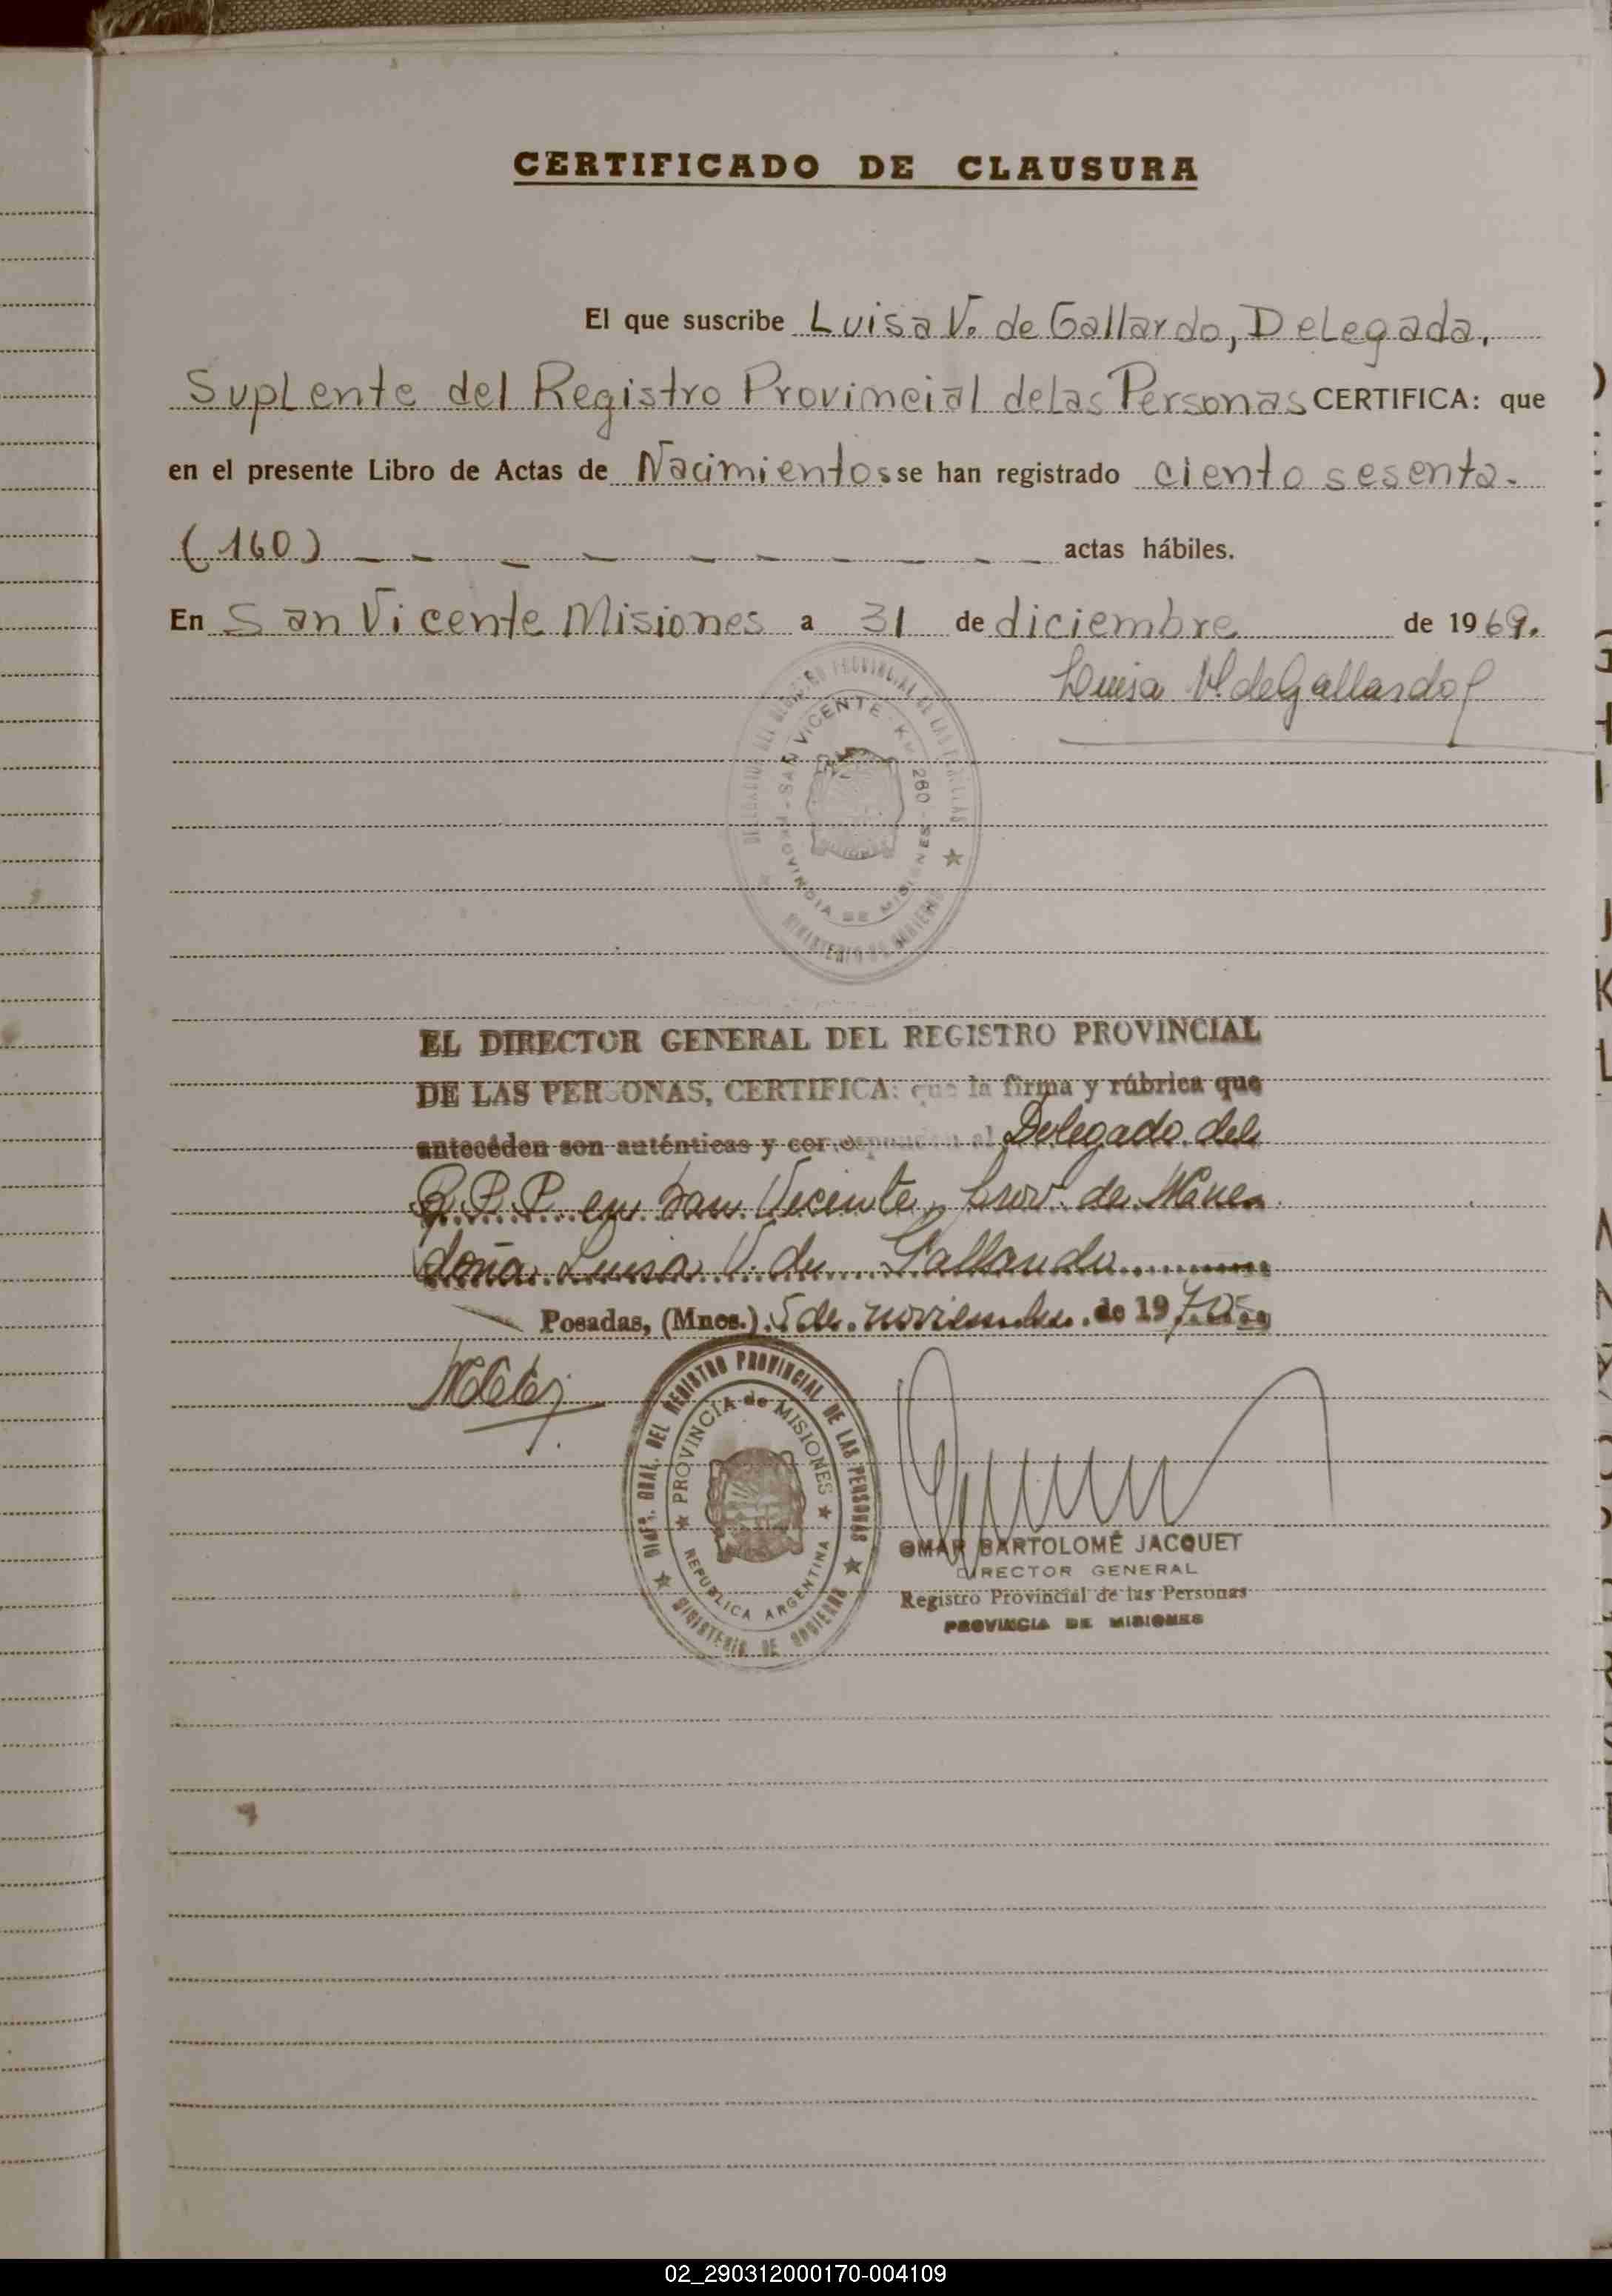 CERTIFICADO DE CLAUSURA
El que suscribe Luisa V. de Gallardo, Delegada,
Suplente del Registro Provincial de las Personas CERTIFICA: que
en el presente Libro de Actas de Nacimientos se han registrado ciento sesenta.
(160) actas hábiles.
En San Vicente Misiones a 31 de diciembre de 1969.
Luisa V. de Gallardo
DELEGACION DEL REGISTRO PROVINCIAL DE LAS PERSONAS
SAN VICENTE - KM 260 - PROVINCIA DE MISIONES
MINISTERIO DE GOBIERNO
EL DIRECTOR GENERAL DEL REGISTRO PROVINCIAL
DE LAS PERSONAS, CERTIFICA: que la firma y rúbrica que
anteceden son auténticas y corresponden al Delegado del
R.P.P. en San Vicente, Prov. de Mnes
doña Luisa V. de Gallardo
Posadas, (Mnes.) 5 de noviembre de 1970
DIREC. GRAL. DEL REGISTRO PROVINCIAL DE LAS PERSONAS
PROVINCIA de MISIONES
REPUBLICA ARGENTINA
MINISTERIO DE GOBIERNO
OMAR BARTOLOMÉ JACQUET
DIRECTOR GENERAL
Registro Provincial de las Personas
PROVINCIA DE MISIONES
02_290312000170-004109